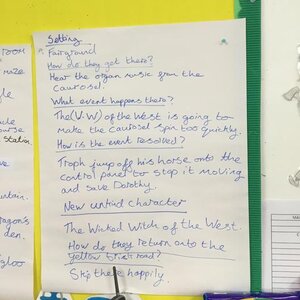 Setting
Fairground
How do they get there?
Hear the organ music from the
Caurosel.
What event happens there?
The (W.W) of the West is going to
make the Caurosel spin too quickly.
How is the event resolved?
Troph jump off his horse onto the
control panel to stop it moving
and save Dorothy.
New untind character
The Wicked Witch of the West.
How do they return onto the
yellow brick road?
Skip there happily.
room
maze
Station.
den.
igloo